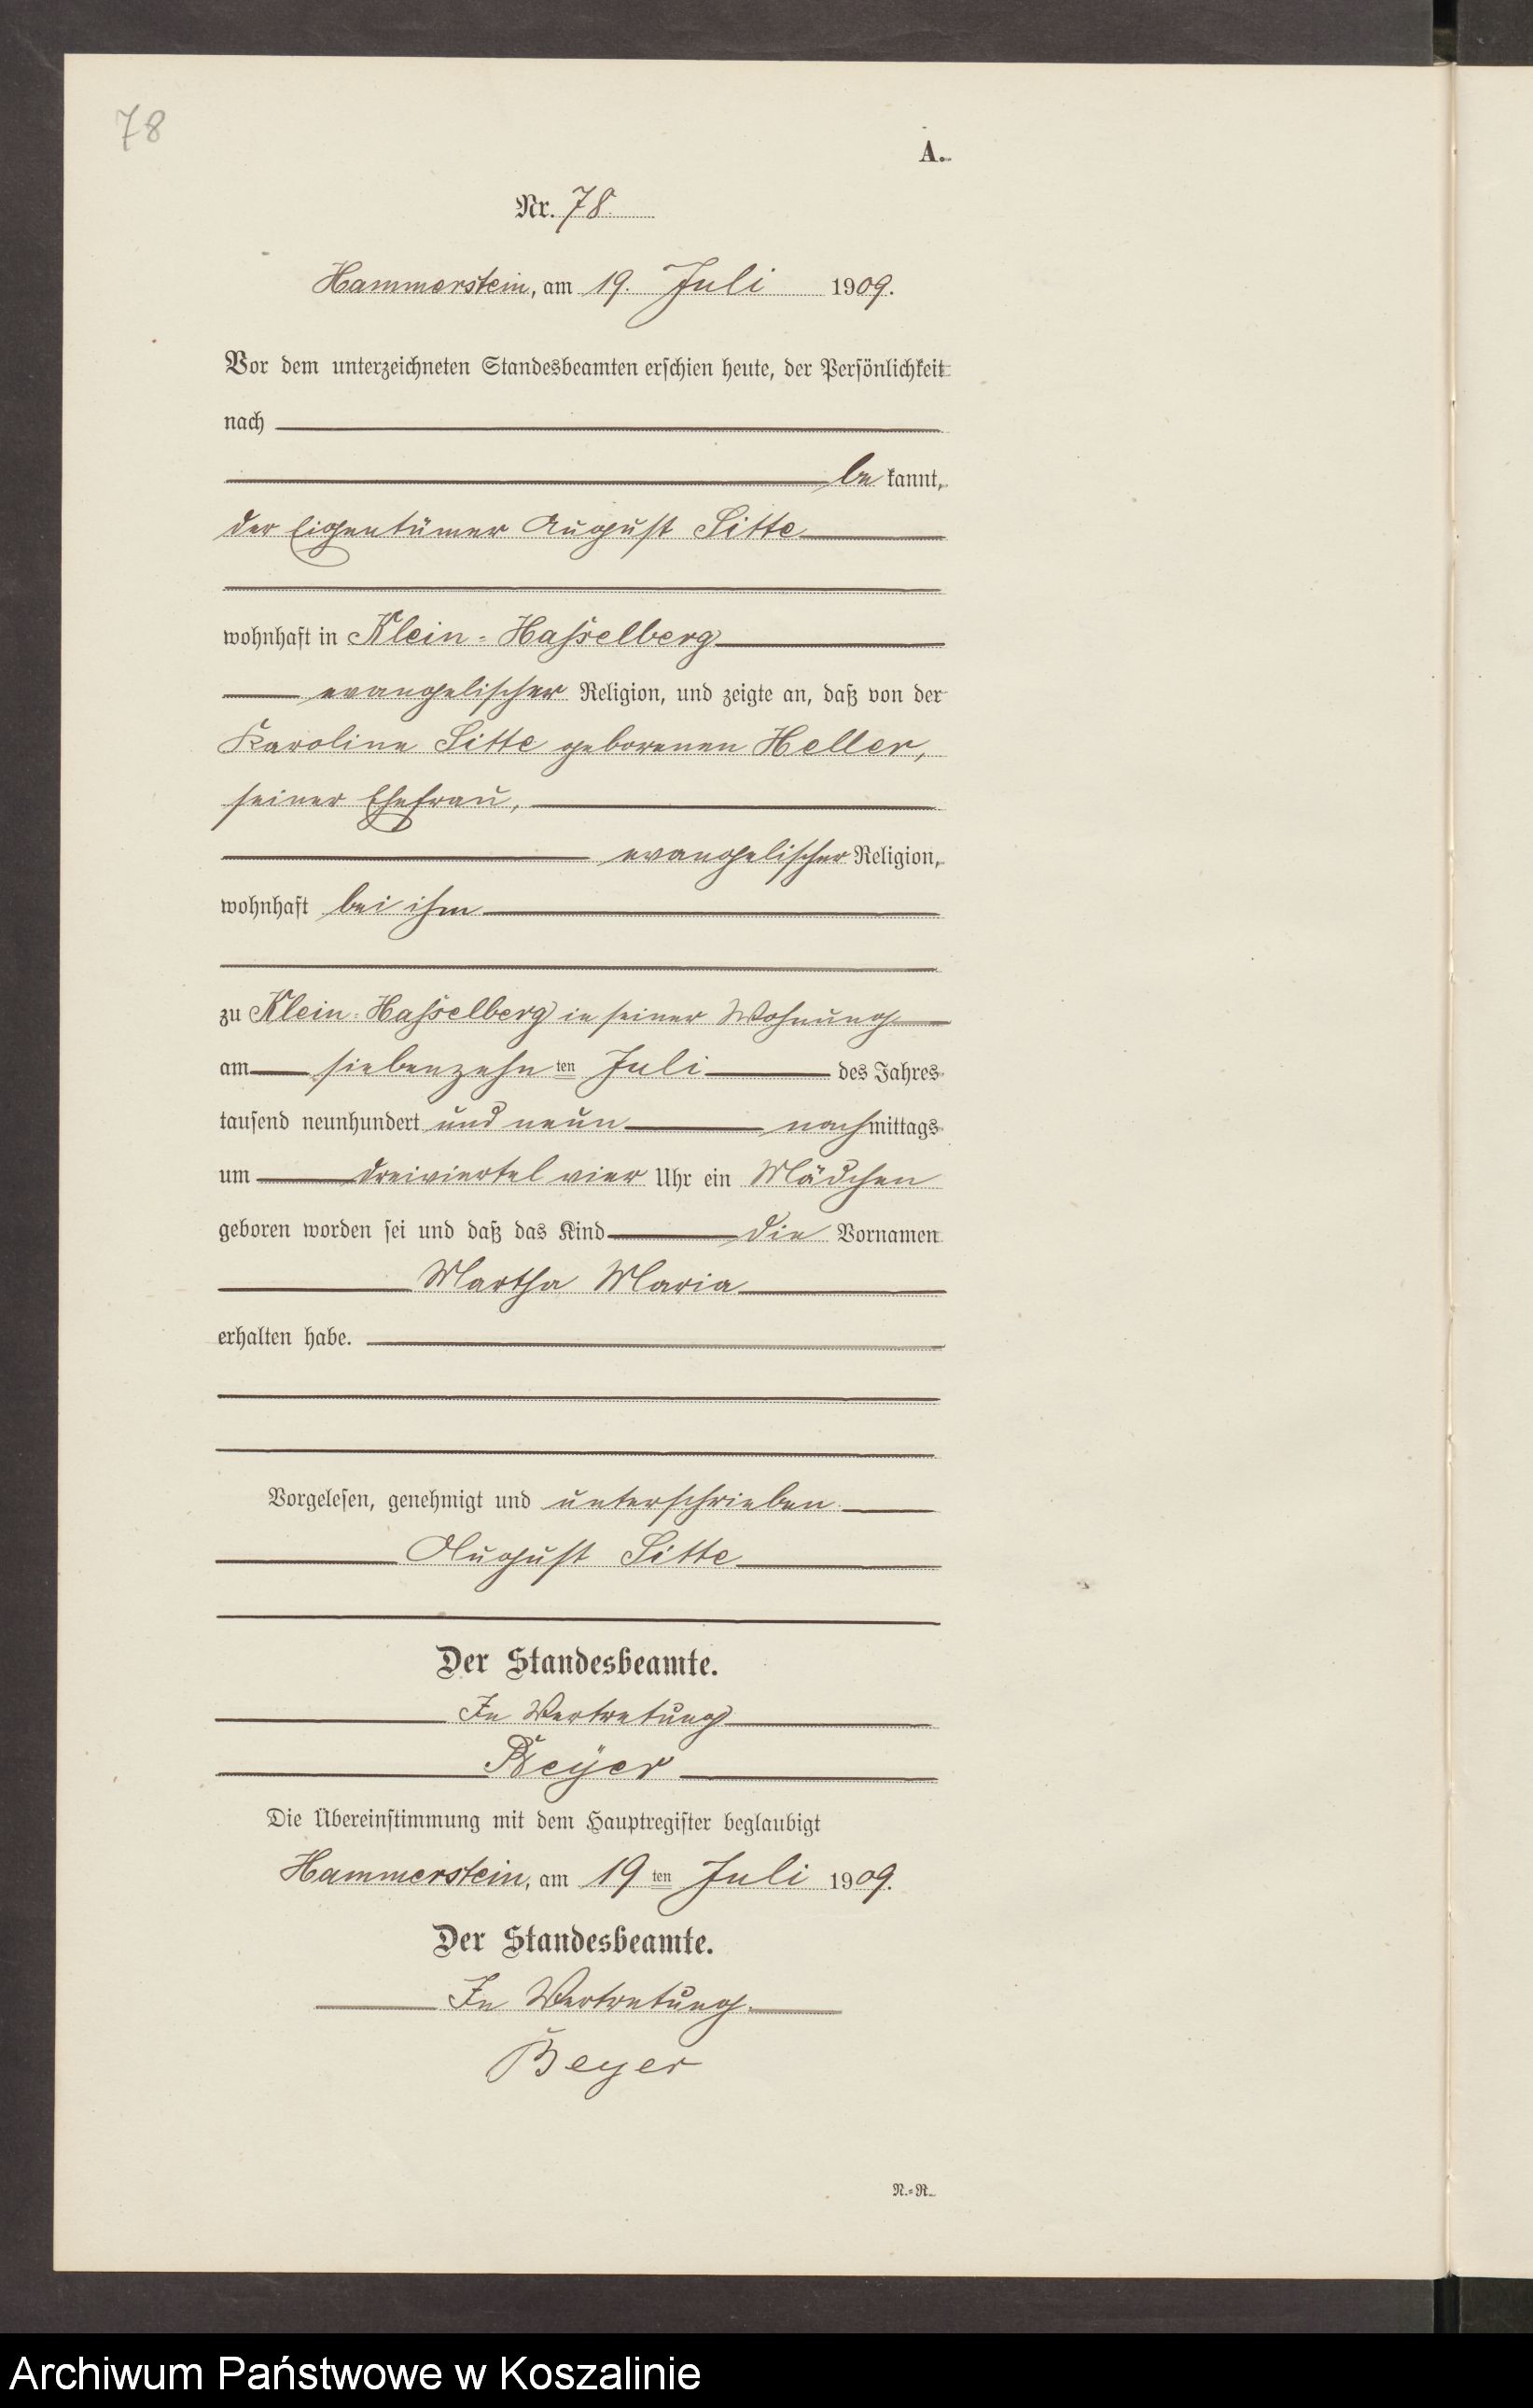 78
A.
Nr. 78.
Hammerstein, am 19. Juli 1909.
Vor dem unterzeichneten Standesbeamten erschien heute, der Persönlichkeit
nach
be kannt,
der Eigentümer August Sitte
wohnhaft in Klein-Hasselberg
evangelischer Religion, und zeigte an, daß von der
Karoline Sitte geborenen Heller,
seiner Ehefrau,
evangelischer Religion,
wohnhaft bei ihm
zu Klein-Hasselberg in seiner Wohnung
am siebenzehn ten Juli des Jahres
tausend neunhundert und neun nachmittags
um dreiviertel vier Uhr ein Mädchen
geboren worden sei und daß das Kind die Vornamen
Martha Maria
erhalten habe.
Vorgelesen, genehmigt und unterschrieben.
August Sitte
Der Standesbeamte.
In Vertretung
Beyer
Die Übereinstimmung mit dem Hauptregister beglaubigt
Hammerstein, am 19 ten Juli 1909.
Der Standesbeamte.
In Vertretung.
Beyer
N.-R.
Archiwum Państwowe w Koszalinie